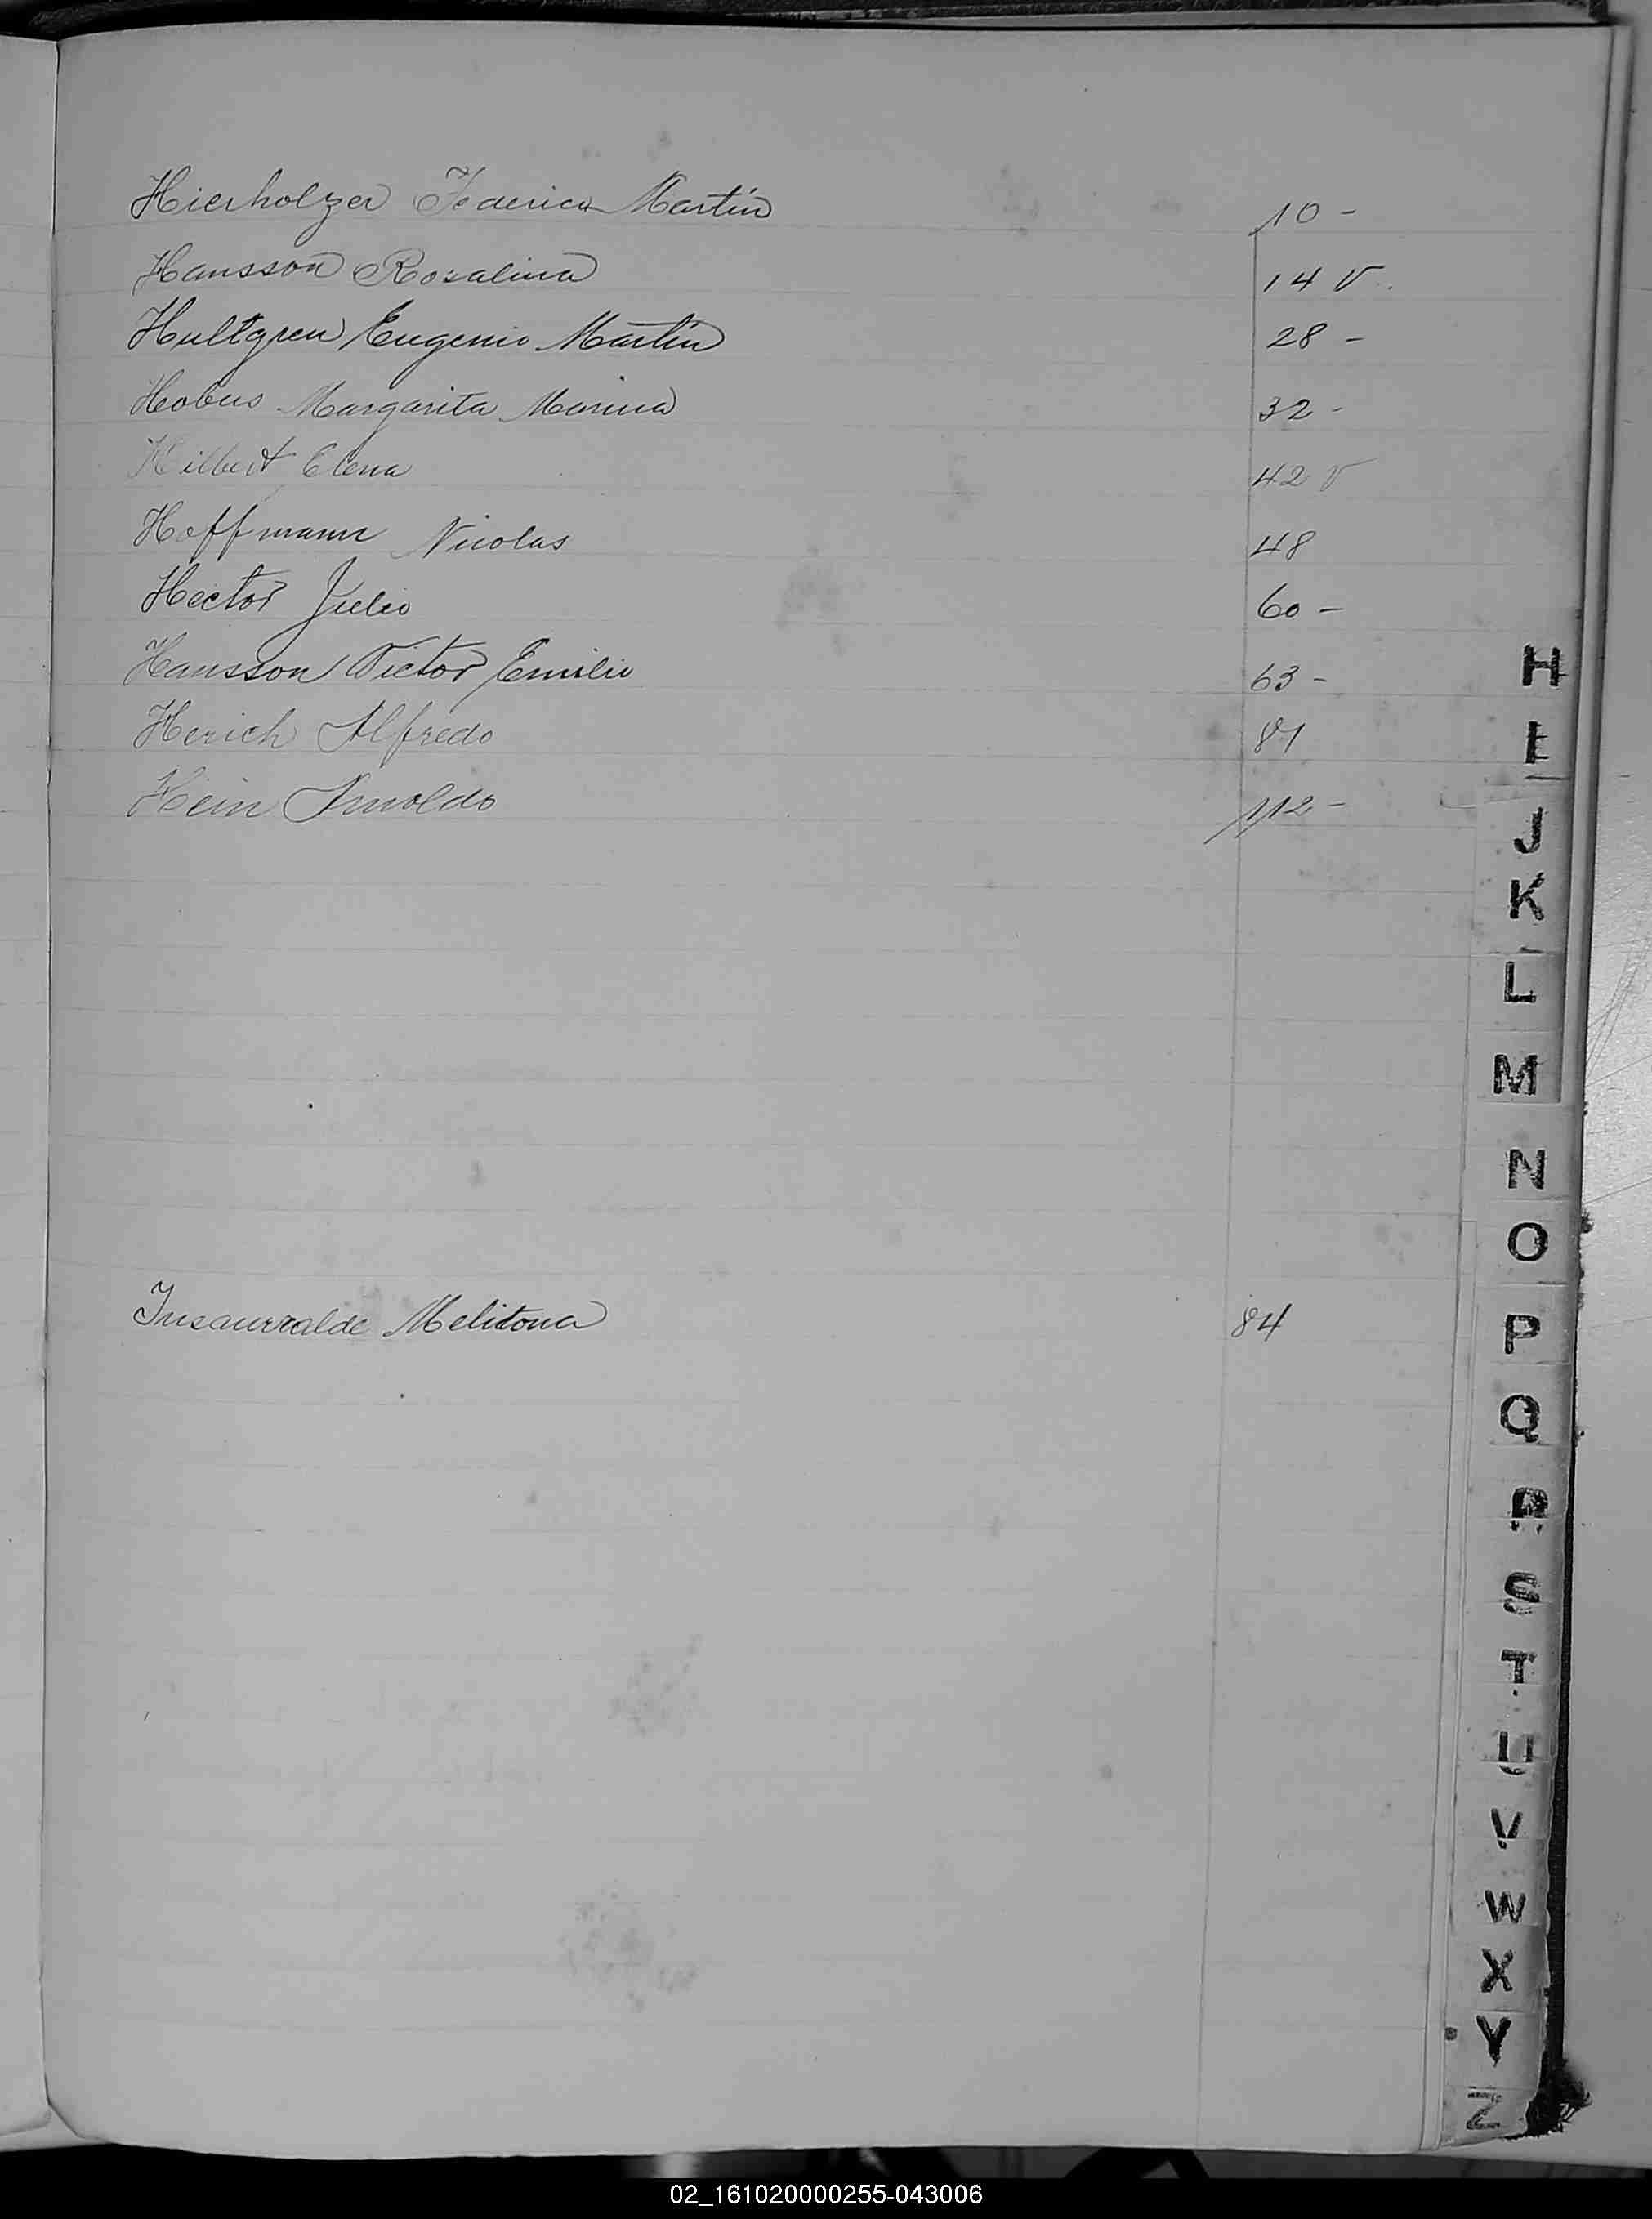 Hierholzer Federico Martín 10 -
Hansson Rosalina 14 V.
Hultgren Eugenio Martín 28 -
Hobus Margarita Marina 32 -
Hilbert Elena 42 V
Hoffmann Nicolas 48
Hector Julio 60 -
Hansson Victor Emilio 63 -
Herich Alfredo 81
Hein Arnoldo 112 -
Insaurralde Melitona 84
H
I
J
K
L
M
N
O
P
Q
R
S
T
U
V
W
X
Y
Z
02_161020000255-043006